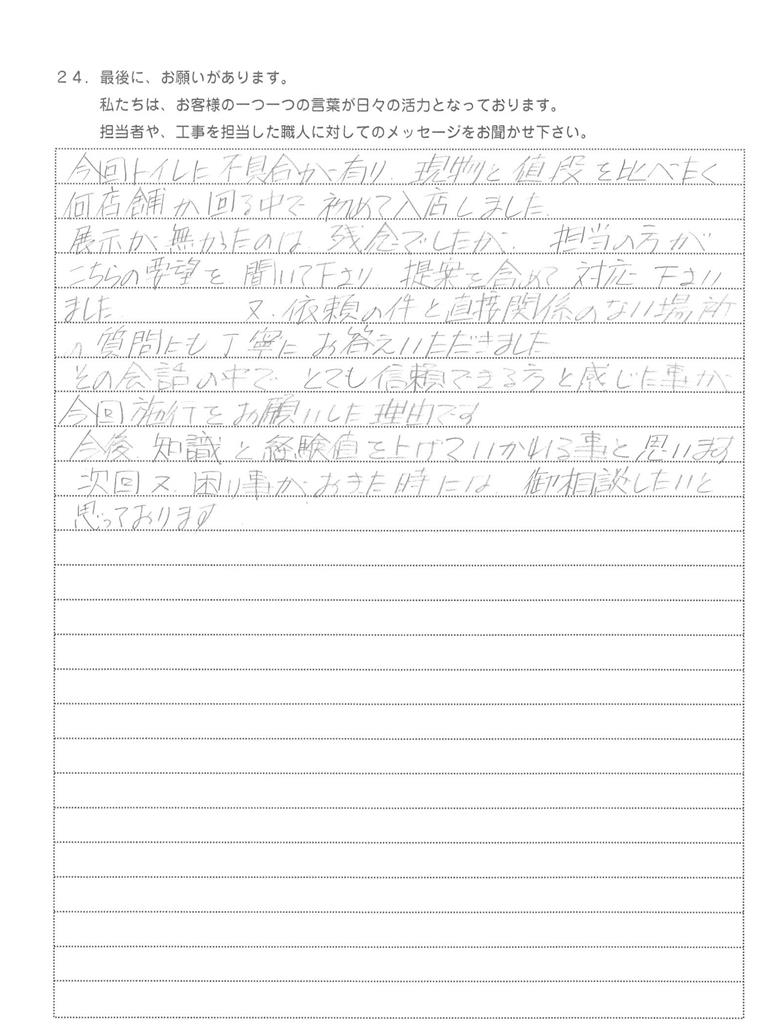 ２４．最後に、お願いがあります。
私たちは、お客様の一つ一つの言葉が日々の活力となっております。
担当者や、工事を担当した職人に対してのメッセージをお聞かせ下さい。
今回トイレに不具合が有り、現物と値段を比べたく
何店舗か回る中で初めて入店しました
展示が無かったのは残念でしたが、担当の方が
こちらの要望を聞いて下さり 提案を含めて対応下さい
ました 又、依頼の件と直接関係のない場所
の質問にも丁寧にお答えいただきました
その会話の中で とても信頼できる方と感じた事が
今回施行をお願いした理由です
今後 知識と経験値を上げていかれる事と思います
次回又、困り事がおきた時には、御相談したいと
思っております